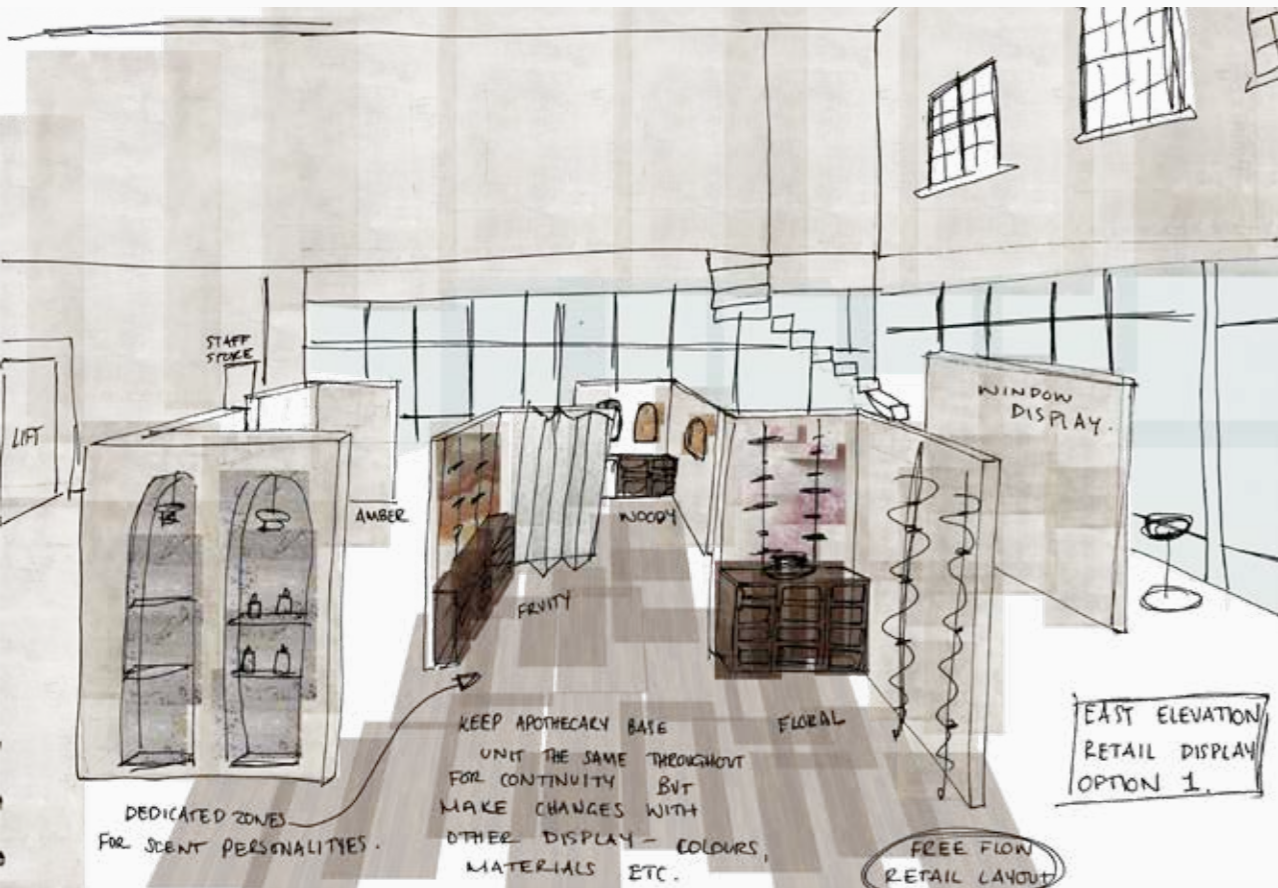 STAFF
STORE
LIFT
WINDOW
DISPLAY.
AMBER
WOODY
FRUITY
FLORAL
KEEP APOTHECARY BASE
UNIT THE SAME THROUGHOUT
FOR CONTINUITY BUT
MAKE CHANGES WITH
OTHER DISPLAY - COLOURS,
MATERIALS ETC.
DEDICATED ZONES
FOR SCENT PERSONALITYES.
EAST ELEVATION
RETAIL DISPLAY
OPTION 1.
FREE FLOW
RETAIL LAYOUT